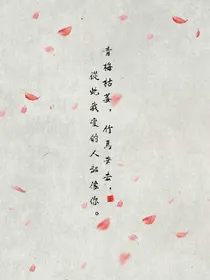 青梅枯萎，竹馬老去，
從此我愛的人都像你。